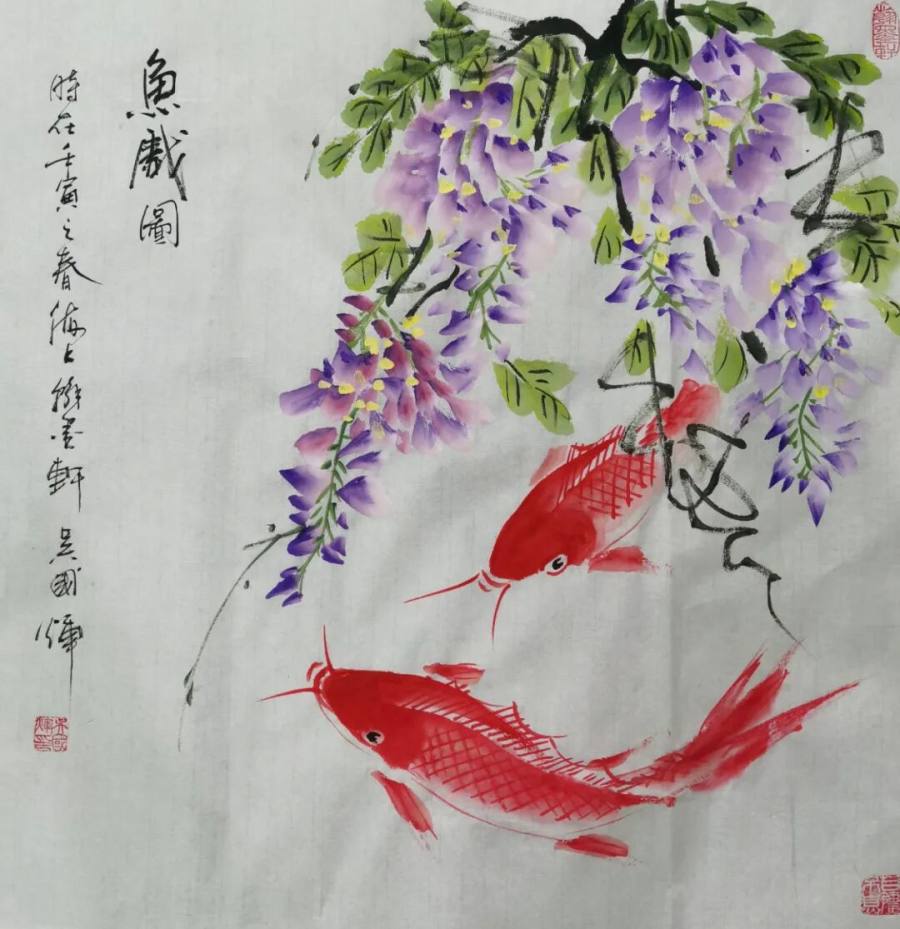 魚戲圖
時在壬寅之春海上翰墨軒吳國輝